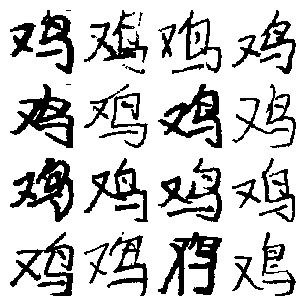 鸡鸡鸡鸡
鸡鸡鸡鸡
鸡鸡鸡鸡
鸡鸡鸡